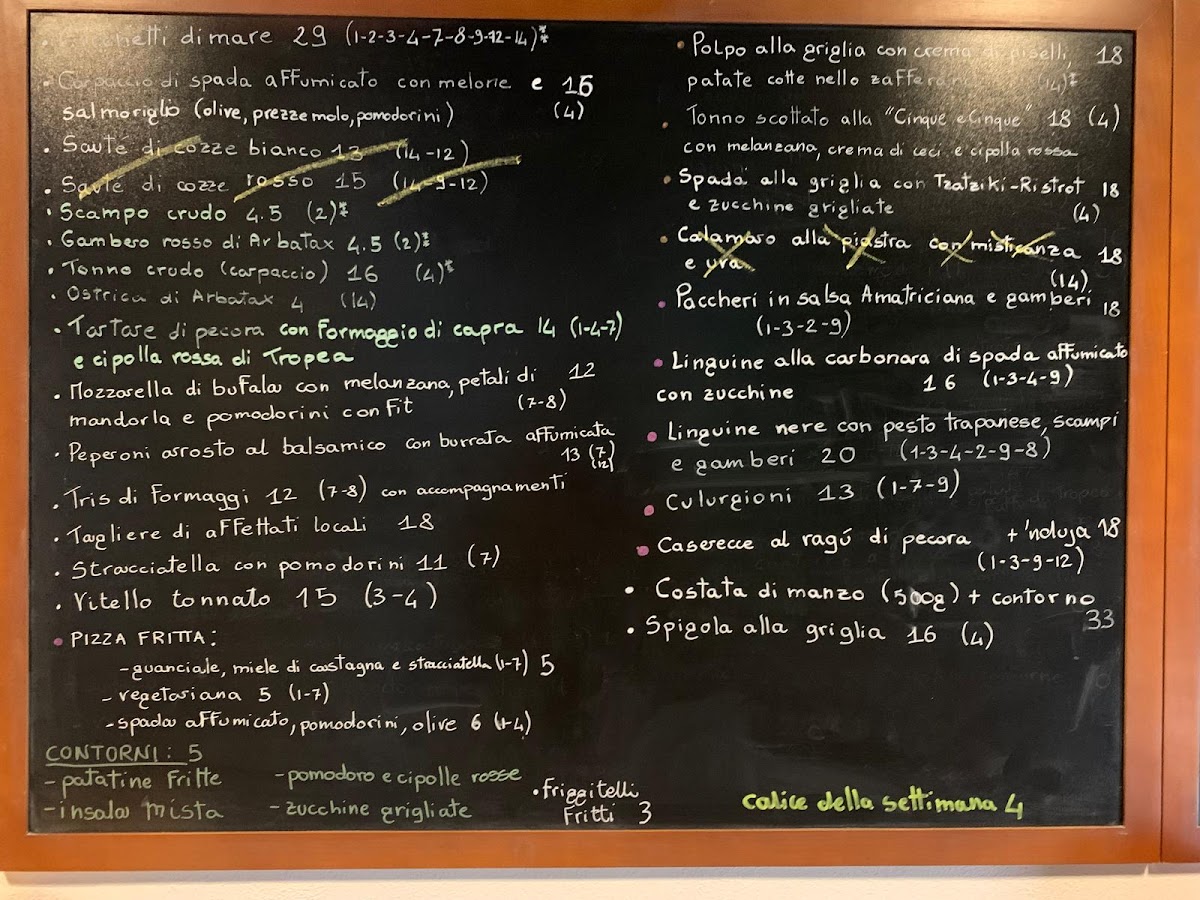 di mare 29 (1-2-3-4-7-8-9-12-14)*
• Carpaccio di spada affumicato con melone e 16
salmoriglio (olive, prezzemolo, pomodorini) (4)
• Sauté di cozze bianco 13 (14-12)
• Sauté di cozze rosso 15 (14-9-12)
• Scampo crudo 4.5 (2)*
• Gambero rosso di Arbatax 4.5 (2)*
• Tonno crudo (carpaccio) 16 (4)*
• Ostrica di Arbatax 4 (14)
• Tartare di pecora con formaggio di capra 14 (1-4-7)
e cipolla rossa di Tropea
• Mozzarella di bufala con melanzana, petali di 12
mandorla e pomodorini confit (7-8)
• Peperoni arrosto al balsamico con burrata affumicata
13 (7
12)
• Tris di formaggi 12 (7-8) con accompagnamenti
• Tagliere di affettati locali 18
• Stracciatella con pomodorini 11 (7)
• Vitello tonnato 15 (3-4)
• PIZZA FRITTA:
- guanciale, miele di castagna e stracciatella (1-7) 5
- vegetariana 5 (1-7)
- spada affumicato, pomodorini, olive 6 (1-4)
CONTORNI: 5
- patatine fritte - pomodoro e cipolle rosse
- insala mista - zucchine grigliate
• friggitelli
fritti 3
• Polpo alla griglia con crema di piselli, 18
patate cotte nello zafferano (14)*
• Tonno scottato alla "Cinque e Cinque" 18 (4)
con melanzana, crema di ceci e cipolla rossa
• Spada alla griglia con Tzatziki-Ristrot 18
e zucchine grigliate (4)
• Calamaro alla piastra con misticanza 18
e uva (14)
• Paccheri in salsa Amatriciana e gamberi 18
(1-3-2-9)
• Linguine alla carbonara di spada affumicato
con zucchine 16 (1-3-4-9)
• Linguine nere con pesto trapanese, scampi
e gamberi 20 (1-3-4-2-9-8)
• Culurgioni 13 (1-7-9)
• Caserecce al ragú di pecora + 'nduja 18
(1-3-9-12)
• Costata di manzo (500g) + contorno
33
• Spigola alla griglia 16 (4)
calice della settimana 4